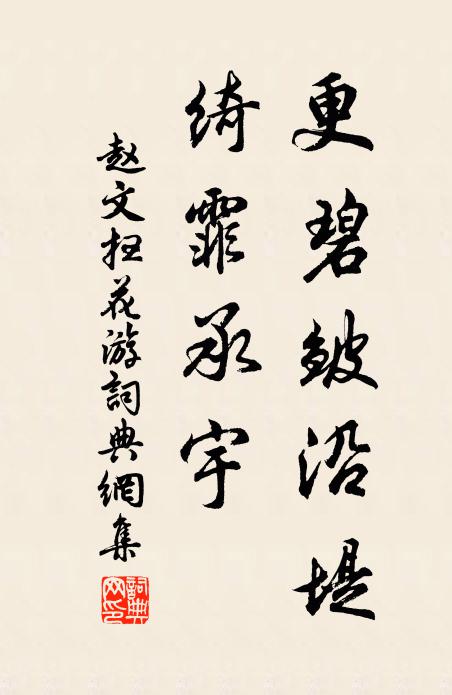 更碧皱沿堤
绮霏承宇
赵文扫花游詞典網集
詞典网印